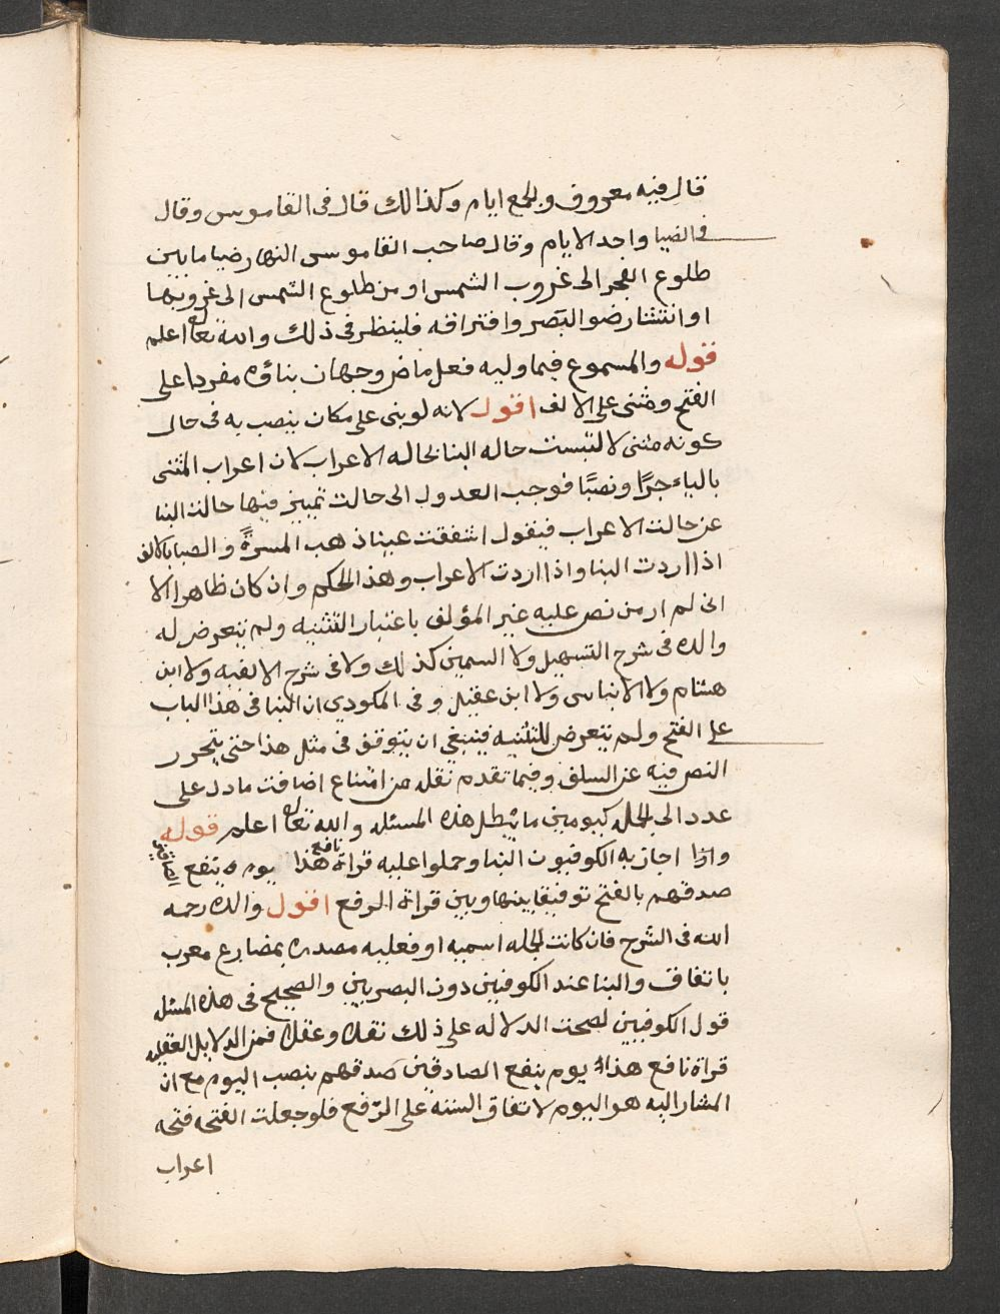 قال فيه معروف والجمع ايام وكذالك قال في القاموس وقال
في الضيا واحد الايام وقال صاحب القاموس النهار ضيا ما بين
طلوع الفجر الى غروب الشمس او من طلوع الشمس الى غروبها
او انتشار ضو البصر وافتراقه فلينظر في ذلك والله تعالى اعلم
قوله والمسموع فيما وليه فعل ماض وجهان بناؤه مفردا على
الفتح ومثنى على الالف اقول لانه لو بنى على مكان ينصب به في حال
كونه مثنى لالتبست حاله البنا بحاله الاعراب لان اعراب المثنى
بالياء جرًا ونصبًا فوجب العدول الى حالت تميز فيها حالت البنا
عن حالت الاعراب فيقول اتفقت عيناذ هب المسرة والصبا بالالف
اذا اردت البنا واذا اردت الاعراب وهذ الحكم وان كان ظاهرا الا
انى لم ار من نص عليه غير المؤلف باعتبار التثنيه ولم يتعرض له
والده في شرح التسهيل ولا السمين كذلك ولا في شرح الالفيه ولا ابن
هشام ولا الانباسى ولا ابن عقيل وفى المكودي ان البنا في هذا الباب
على الفتح ولم يتعرض للتثنيه فينبغي ان يتوقف في مثل هذا حتى يتحرر
النص فيه عن السلف وفيما تقدم نقله من امتناع اضافت ما دل على
عدد الى الجمل كيومين ما يبطل هذه المسئله والله تعالى اعلم قوله
واذا اجاز به الكوفيون البنا وحملوا عليه قراة نافع هذا يوم ينفع الصادقين
صدقهم بالفتح توفيقا بينها وبين قراة الرفع اقول والده رحمه
الله في الشرح فان كانت الجمله اسميه او فعليه مصدره بمضارع معرب
باتفاق والبنا عند الكوفين دون البصريين والصحيح في هذه المسئله
قول الكوفيين لصحت الدلاله على ذلك نقلا وعقلا فمن الدلايل العقليه
قراة نافع هذا يوم ينفع الصادقين صدقهم بنصب اليوم مع ان
المشار اليه هو اليوم لاتفاق السته على الرفع فلو جعلت الفتحه فتحه
اعراب